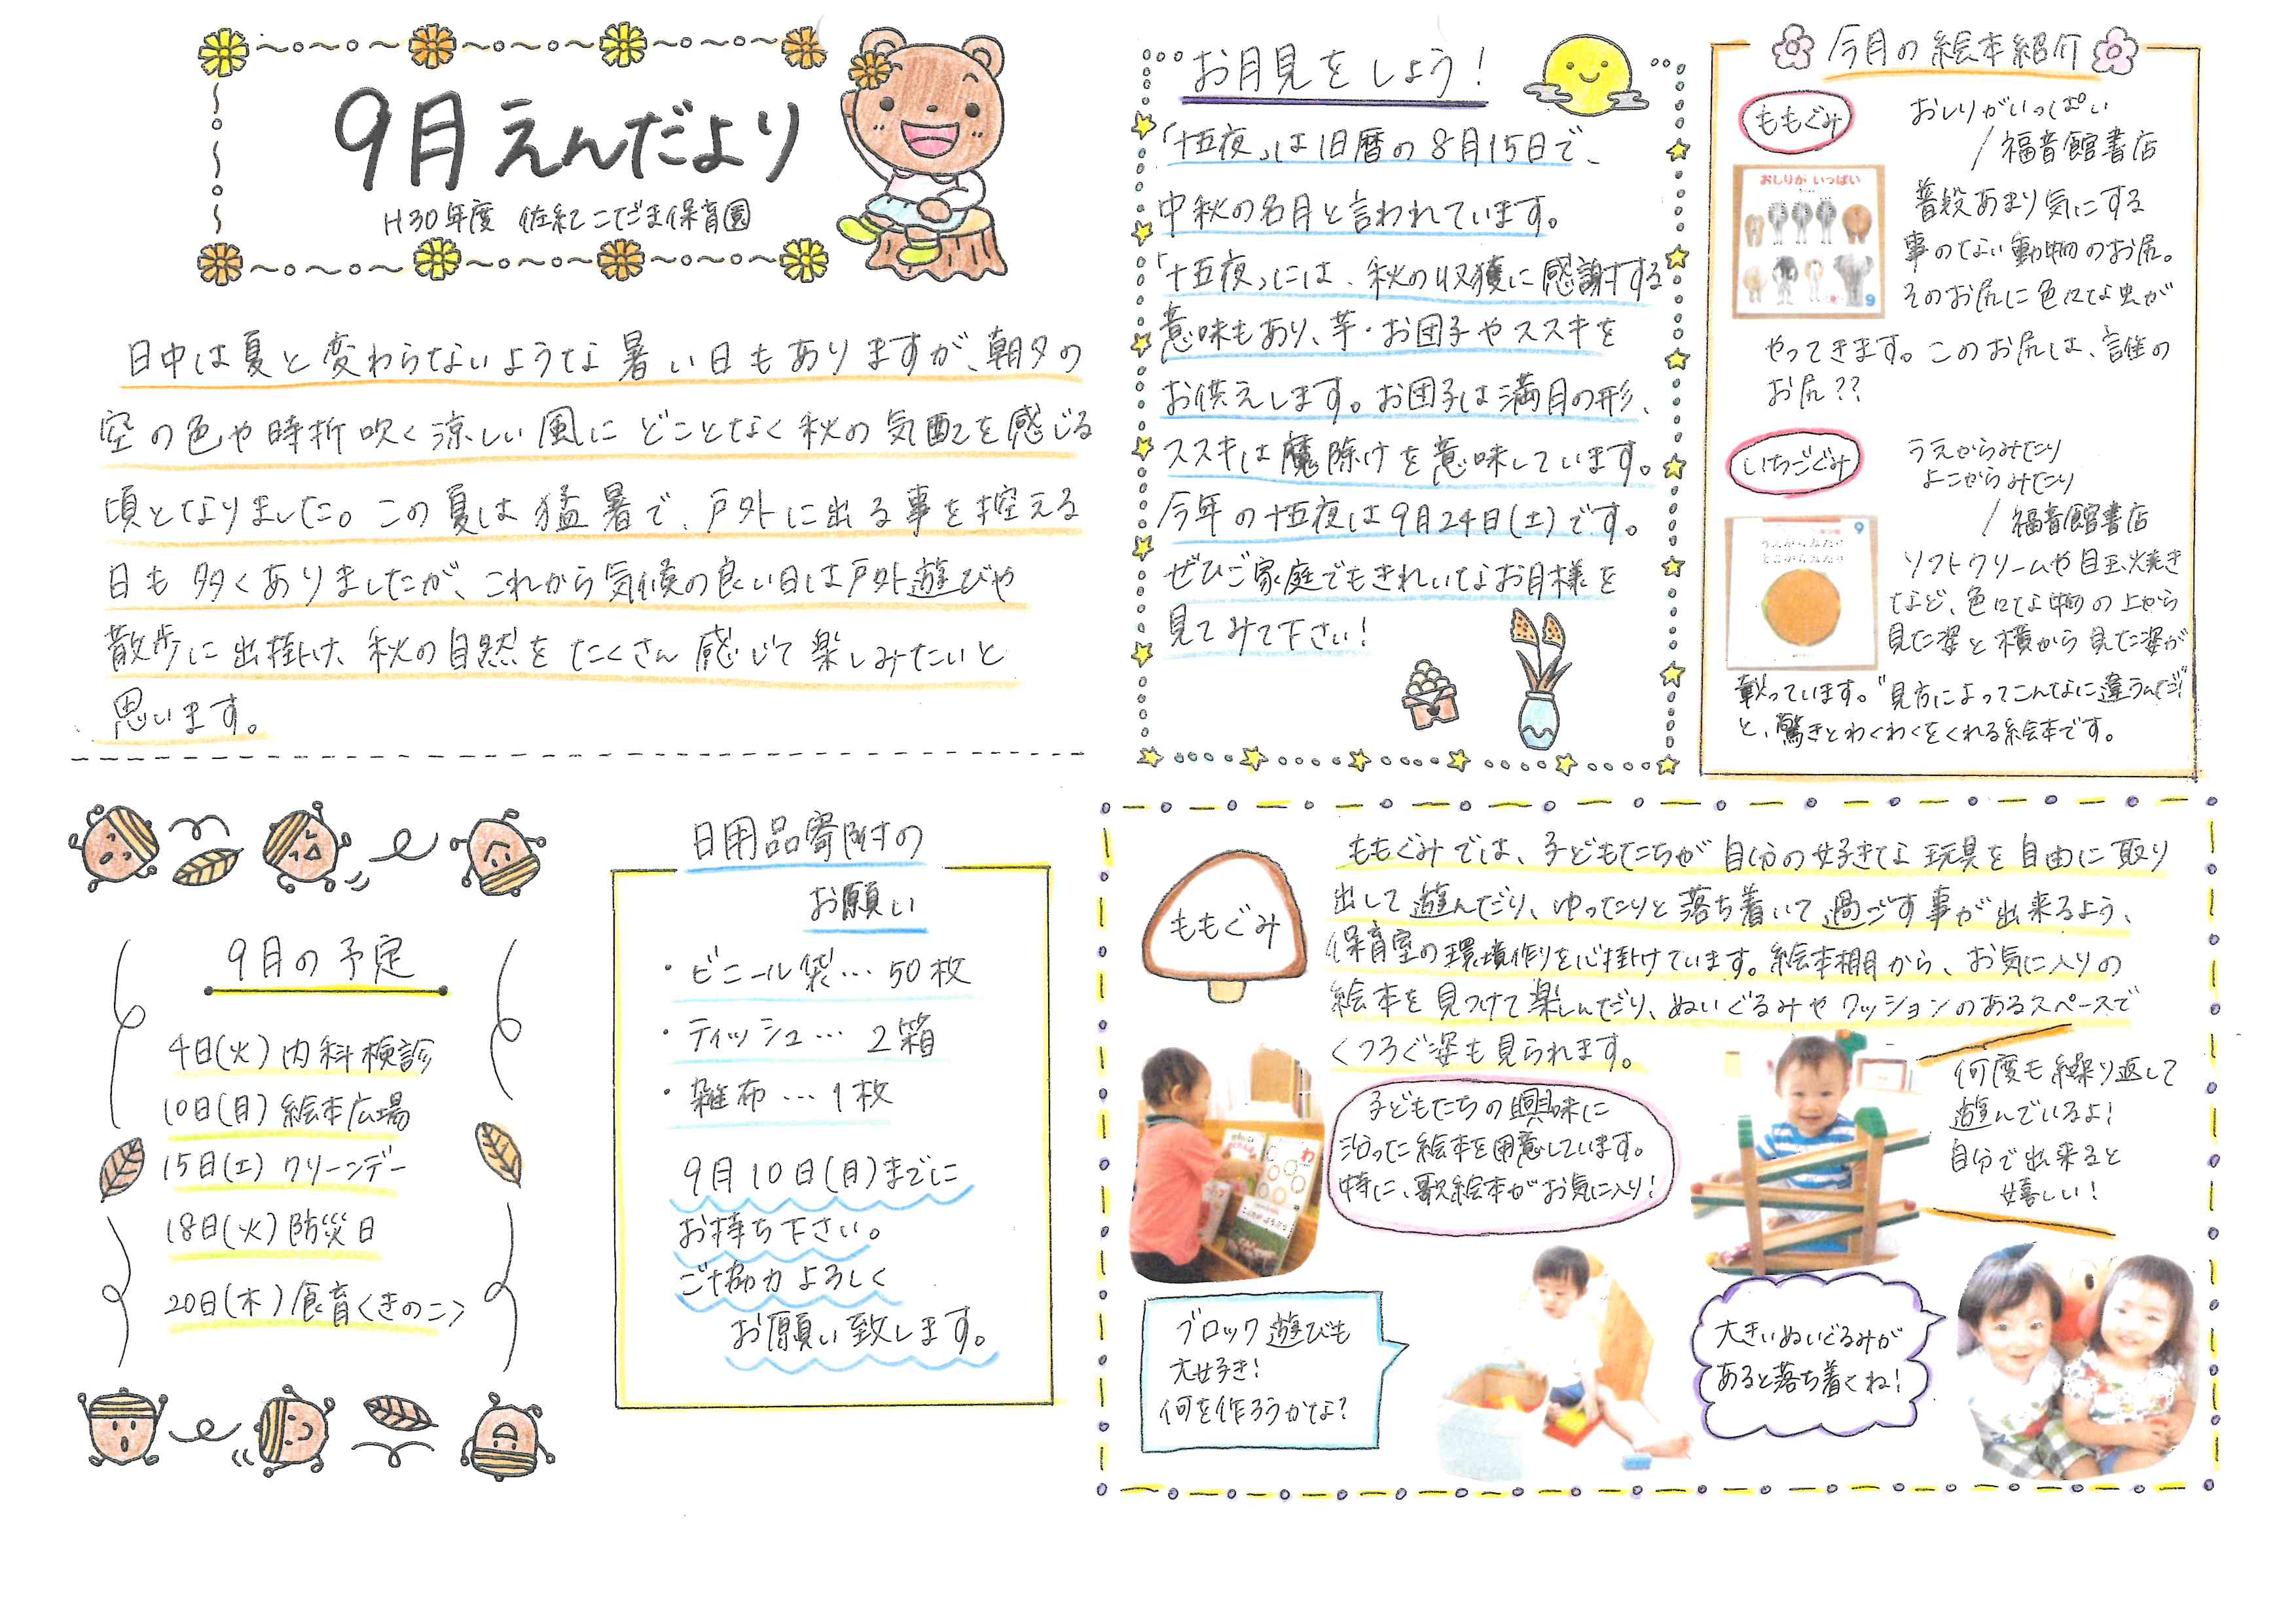 9月えんだより
H30年度 佐紀こだま保育園
日中は夏と変わらないような暑い日もありますが、朝夕の
空の色や時折吹く涼しい風にどことなく秋の気配を感じる
頃となりました。この夏は猛暑で、戸外に出る事を控える
日も多くありましたが、これから気候の良い日は戸外遊びや
散歩に出掛け、秋の自然をたくさん感じて楽しみたいと
思います。
9月の予定
4日(火)内科検診
10日(月)絵本広場
15日(土)クリーンデー
18日(火)防災日
20日(木)食育〈きのこ〉
日用品寄附の
お願い
・ビニール袋…50枚
・ティッシュ… 2箱
・雑布…1枚
9月10日(月)までに
お持ち下さい。
ご協力よろしく
お願い致します。
お月見をしよう!
「十五夜」は旧暦の8月15日で、
中秋の名月と言われています。
「十五夜」には、秋の収獲に感謝する
意味もあり、芋・お団子やススキを
お供えします。お団子は満月の形、
ススキは魔除けを意味しています。
今年の十五夜は9月24日(土)です。
ぜひご家庭でもきれいなお月様を
見てみて下さい!
今月の絵本紹介
ももぐみ
おしりがいっぱい
/福音館書店
おしりが いっぱい
9
普段あまり気にする
事のない動物のお尻。
そのお尻に色々な虫が
やってきます。このお尻は、誰の
お尻??
いちごぐみ
うえからみたり
よこからみたり
/福音館書店
9
うえからみたり
よこからみたり
ソフトクリームや目玉焼き
など、色々な物の上から
見た姿と横から見た姿が
載っています。"見方によってこんなに違うんだ!"
と、驚きとわくわくをくれる絵本です。
ももぐみ
ももぐみでは、子どもたちが自分の好きな玩具を自由に取り
出して遊んだり、ゆったりと落ち着いて過ごす事が出来るよう、
保育室の環境作りを心掛けています。絵本棚から、お気に入りの
絵本を見つけて楽しんだり、ぬいぐるみやクッションのあるスペースで
くつろぐ姿も見られます。
子どもたちの興味に
沿った絵本を用意しています。
特に、歌絵本がお気に入り!
何度も繰り返して
遊んでいるよ!
自分で出来ると
嬉しい!
ブロック遊びも
大好き!
何を作ろうかな?
大きいぬいぐるみが
あると落ち着くね!